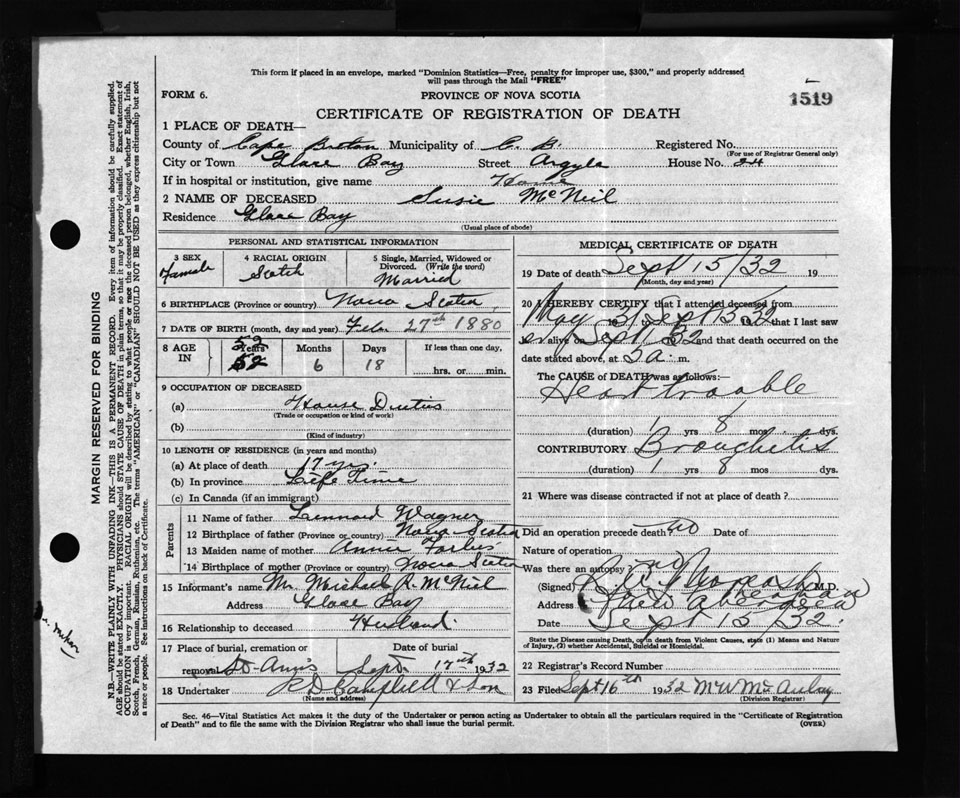 This form if placed in an envelope, marked "Dominion Statistics—Free, penalty for improper use, $300," and properly addressed
will pass through the Mail "FREE"
FORM 6.
PROVINCE OF NOVA SCOTIA
1519
CERTIFICATE OF REGISTRATION OF DEATH
1 PLACE OF DEATH—
County of Cape Breton Municipality of C. B. Registered No.
(For use of Registrar General only)
City or Town Glace Bay Street Argyle House No. 24
If in hospital or institution, give name Home
2 NAME OF DECEASED Susie McNeil
Residence Glace Bay
(Usual place of abode)
PERSONAL AND STATISTICAL INFORMATION
3 SEX
Female
4 RACIAL ORIGIN
Scotch
5 Single, Married, Widowed or
Divorced. (Write the word)
Married
6 BIRTHPLACE (Province or country) Nova Scotia
7 DATE OF BIRTH (month, day and year) Feb. 27th 1880
8 AGE
IN
52
Years
52
Months
6
Days
18
If less than one day,
hrs. or min.
9 OCCUPATION OF DECEASED
(a) House Duties
(Trade or occupation or kind of work)
(b)
(Kind of industry)
10 LENGTH OF RESIDENCE (in years and months)
(a) At place of death 17 yrs.
(b) In province Life Time
(c) In Canada (if an immigrant)
Parents
11 Name of father Lennard Wagner
12 Birthplace of father (Province or country) Nova Scotia
13 Maiden name of mother Annie Forbes
14 Birthplace of mother (Province or country) Nova Scotia
15 Informant's name Mr. Michael R. McNeil
Address Glace Bay
16 Relationship to deceased Husband.
17 Place of burial, cremation or Date of burial
removal St. Anns Sept. 17th 1932
18 Undertaker Campbell & Son
(Name and address)
MEDICAL CERTIFICATE OF DEATH
19 Date of death Sept 15/32 19
(Month, day and year)
20 I HEREBY CERTIFY that I attended deceased from
May 31 to Sept 15 32 that I last saw
er alive Sept 32 and that death occurred on the
date stated above, at 5 a. m.
The CAUSE of DEATH was as follows:
Heart trouble
(duration) 1 yrs 8 mos. dys.
CONTRIBUTORY Bronchetis
(duration) 1 yrs 8 mos dys.
21 Where was disease contracted if not at place of death?
Did an operation precede death? no Date of
Nature of operation
Was there an autopsy no
(Signed) M.D.
Address New Aberdeen
Date Sept 15/32.
State the Disease causing Death, or in death from Violent Causes, state (1) Means and Nature
of Injury, (2) whether Accidental, Suicidal or Homicidal.
22 Registrar's Record Number
23 Filed Sept 16th 1932
(Division Registrar)
Sec. 46—Vital Statistics Act makes it the duty of the Undertaker or person acting as Undertaker to obtain all the particulars required in the "Certificate of Registration
of Death" and to file the same with the Division Registrar who shall issue the burial permit.
(OVER)
MARGIN RESERVED FOR BINDING
N.B.—WRITE PLAINLY WITH UNFADING INK—THIS IS A PERMANENT RECORD. Every item of information should be carefully supplied.
AGE should be stated EXACTLY. PHYSICIANS should STATE CAUSE OF DEATH in plain terms, so that it may be properly classified. Exact statement of
OCCUPATION is very important. RACIAL ORIGIN will be described by stating to what people or race the deceased person belonged, whether English, Irish,
Scotch, French, German, Russian, Ruthenian, etc. The terms "AMERICAN" or "CANADIAN" SHOULD NOT BE USED as they express citizenship but not
a race or people. See instructions on back of Certificate.